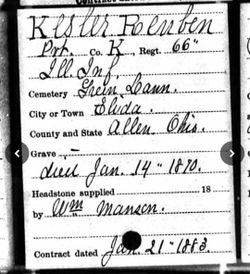 Kesler Reuben
Pvt. Co. K, Regt. 66"
Ill. Inf.
Cemetery Green Lawn.
City or Town Elida.
County and State Allen, Ohio.
Grave
died Jan. 14" 1870.
Headstone supplied 18
by Wm Manson.
Contract dated Jan. 21" 1883.